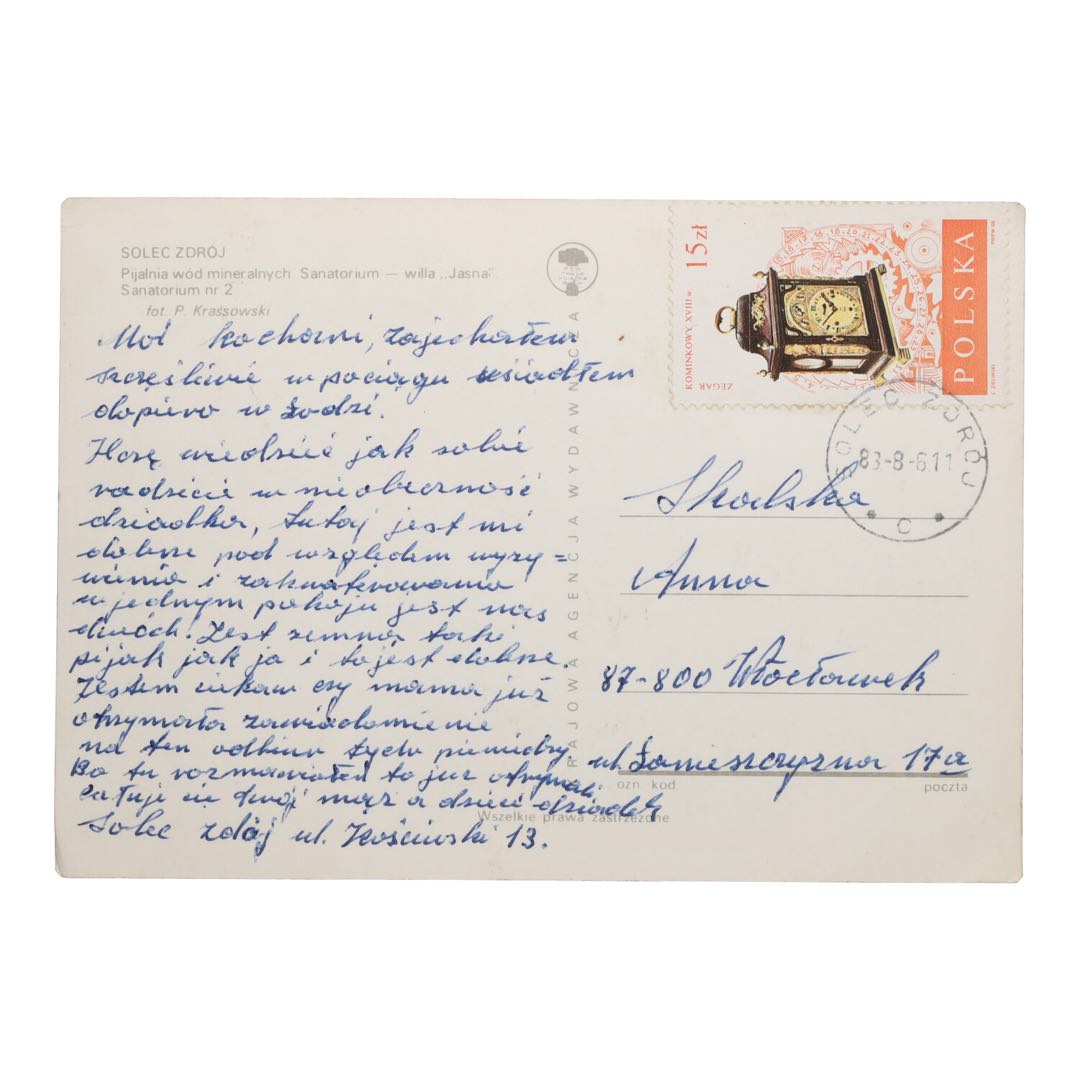 SOLEC ZDRÓJ
Pijalnia wód mineralnych. Sanatorium — willa „Jasna"
Sanatorium nr 2
fot. P. Krassowski
Moi kochani, zajechałem
szczęśliwie w pociągu usiadłem
dopiero w Łodzi.
Hcę wiedzieć jak sobie
radzicie w nieobecność
dziadka, tutaj jest mi
dobrze pod względem wyży=
wienia i zakwaterowania
w jednym pokoju jest nas
dwóch. Jest zemną taki
pijak jak ja i to jest dobrze.
Jestem ciekaw czy mama już
otrzymała zawiadomienie
na ten odbiur tych pieniędzy
Bo tu rozmawiałem to już otrzymali
całuje cie twój mąż a dzieci dziadek
Solec zdój ul. 13.
KRAJOWA AGENCJA WYDAWNICZA
Wszelkie prawa zastrzeżone
15 zł
ZEGAR KOMINKOWY, XVIII w.
POLSKA
SOLEC ZDRÓJ
83-8-611
c
Skalska
Anna
87-800 Włocławek
ul. 17a
ozn kod
poczta